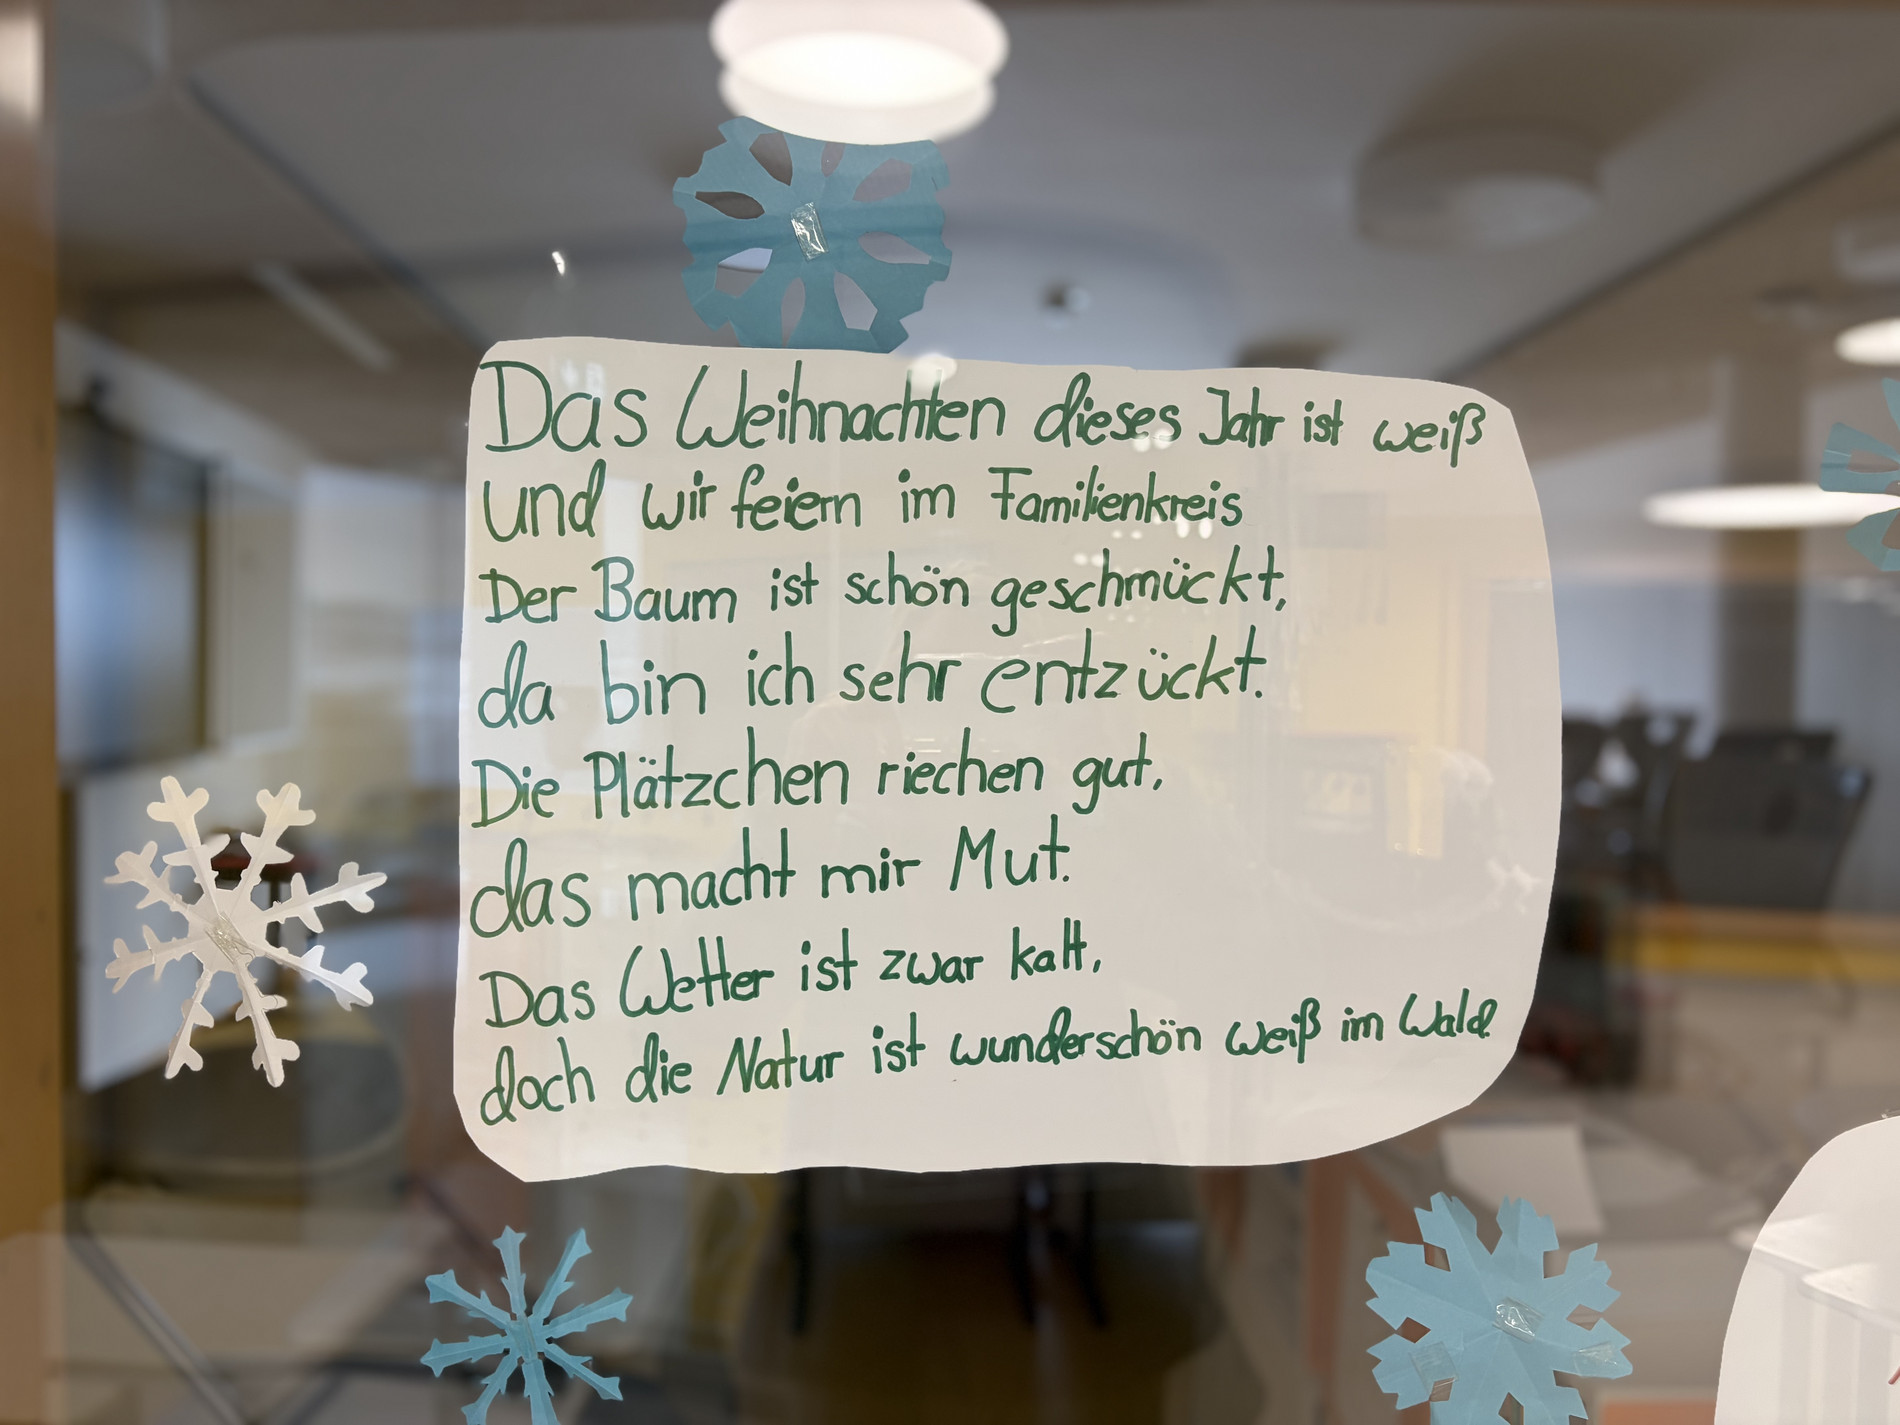 Das Weihnachten dieses Jahr ist weiß
und wir feiern im Familienkreis
Der Baum ist schön geschmückt,
da bin ich sehr entzückt.
Die Plätzchen riechen gut,
das macht mir Mut.
Das Wetter ist zwar kalt,
doch die Natur ist wunderschön weiß im Wald.